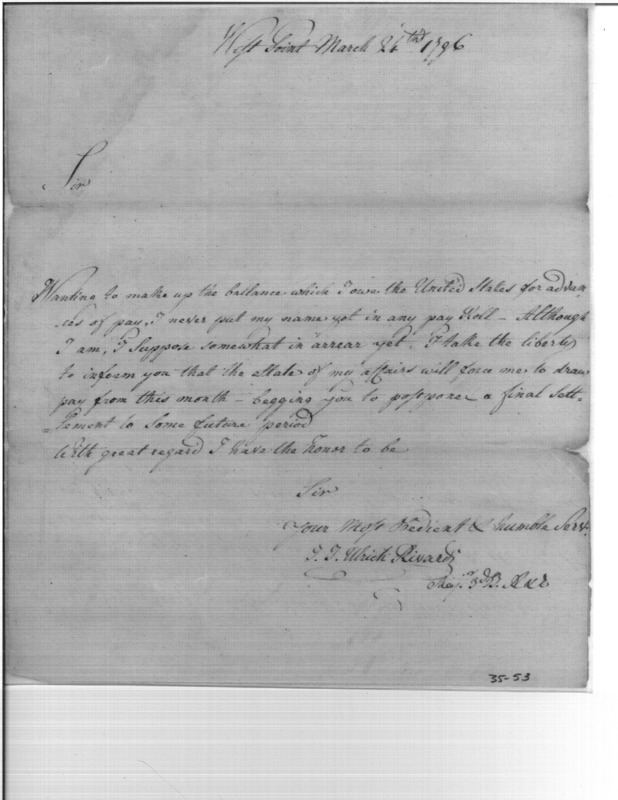 West Point March 26th 1796
Sir
Wanting to make up the ballance which I owe the United States for advan
ces of pay, I never put my name yet in any pay Roll – Although
I am, I Suppose somewhat in arrear yet. I take the liberty
to inform you that the State of my affairs will force me to draw
pay from this month – begging you to postpone a final Sett=
=lement to Some future period
With great regard I have the honor to be
Sir
Your Most Obedient & humble Serv.
J. J. Ulrich Rivardi
35-53